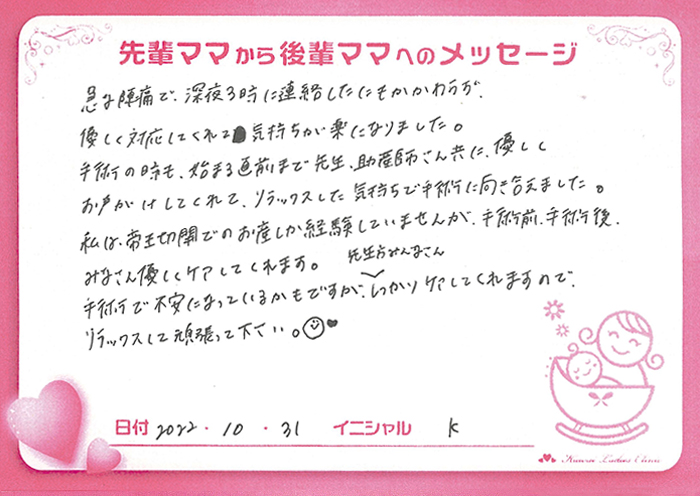 先輩ママから後輩ママへのメッセージ
急な陣痛で、深夜3時に連絡したにもかかわらず、
優しく対応してくれて気持ちが楽になりました。
手術の時も、始まる直前まで先生、助産師さん共に、優しく
お声がけしてくれて、リラックスした気持ちで手術に向き合えました。
私は、帝王切開でのお産しか経験していませんが、手術前、手術後、
みなさん優しくケアしてくれます。
先生方みんなさん
手術で不安になっているかもですが、しっかりケアしてくれますので、
リラックスして頑張って下さい。
日付 2022・10・31 イニシャル K
Ladies Clinic